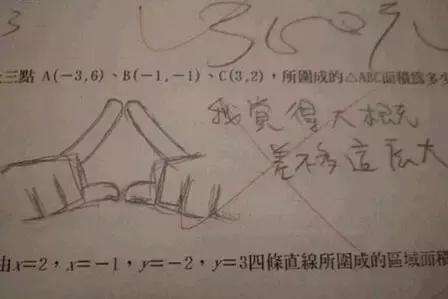 三點 A(-3,6)、B(-1,-1)、C(3,2)，所圍成的△ABC面積為多少
我覺得大概
差不多這麼大
由x=2，x=-1，y=-2，y=3四條直線所圍成的區域面積